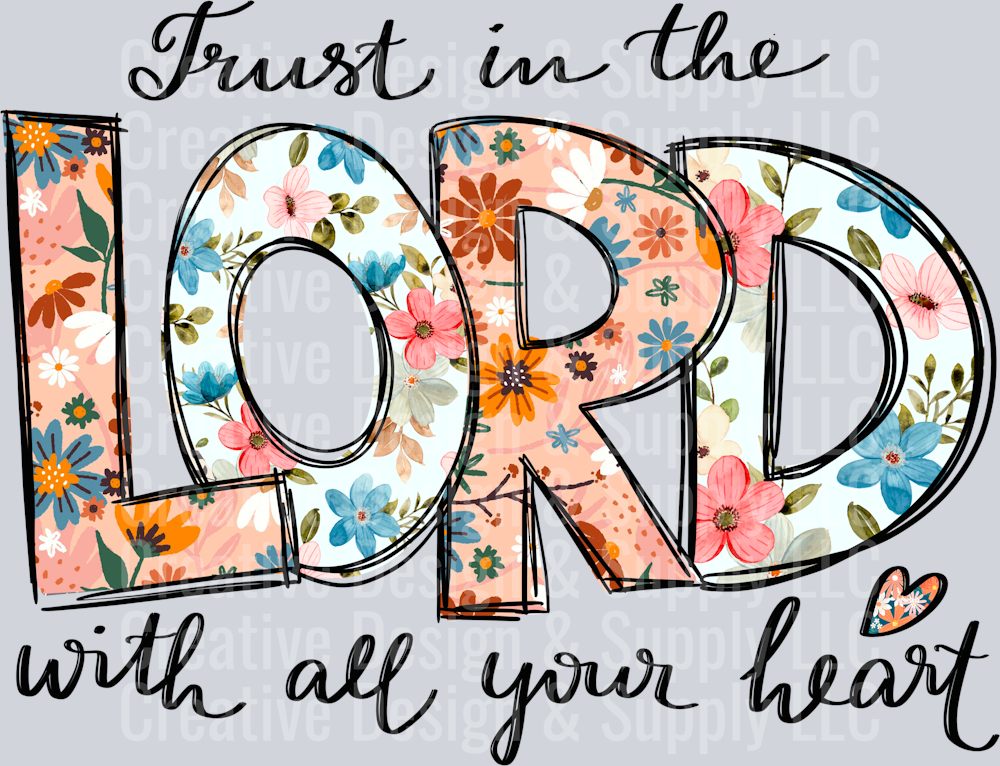 Trust in the
LORD
with all your heart
Creative Design & Supply LLC
Creative Design & Supply LLC
Creative Design & Supply LLC
Creative Design & Supply LLC
Creative Design & Supply LLC
Creative Design & Supply LLC
Creative Design & Supply LLC
Creative Design & Supply LLC
Creative Design & Supply LLC
Creative Design & Supply LLC